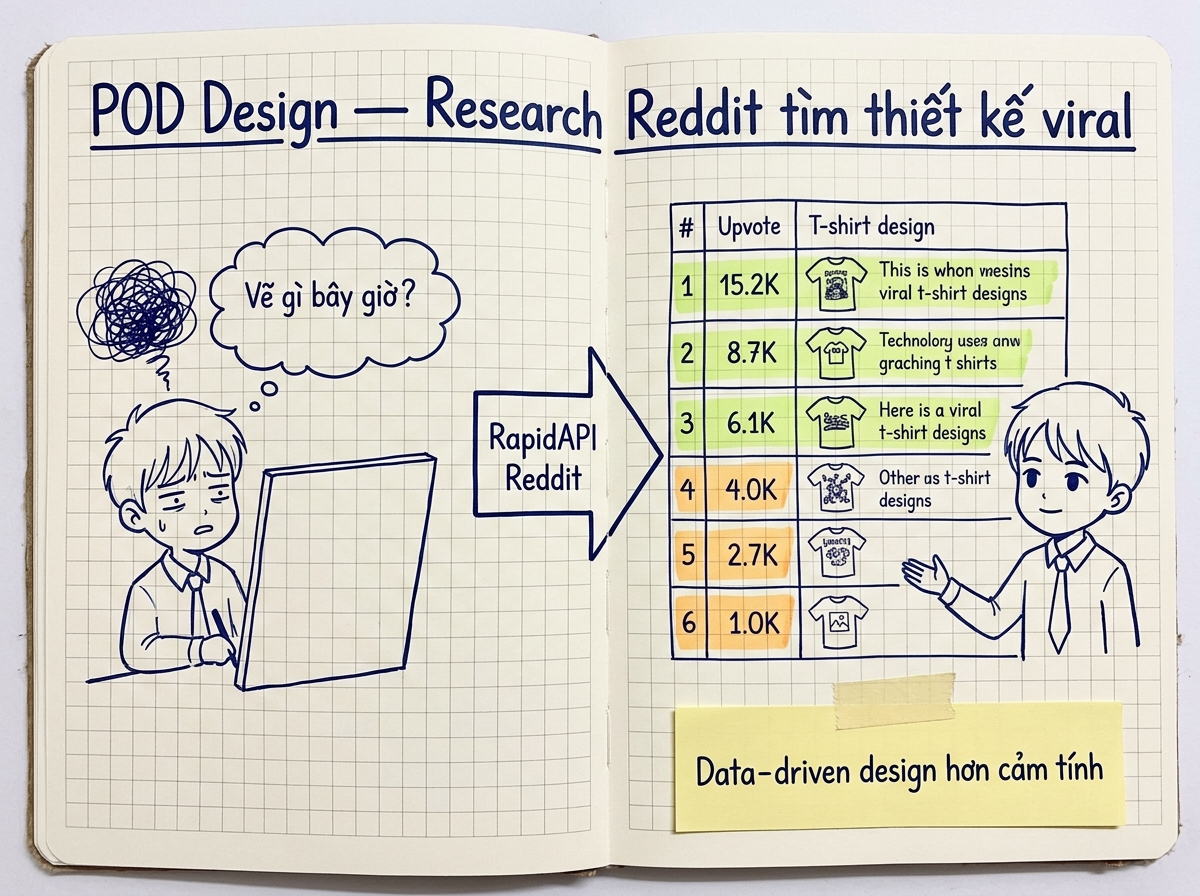 POD Design — Research Reddit tìm thiết kế viral
Vẽ gì bây giờ?
RapidAPI
Reddit
# Upvote T-shirt design
1 15.2K This is whon mesins
viral t-shirt designs
2 8.7K Technolory uses anw
graching t shirts
3 6.1K Here is a viral
t-shirt designs
4 4.0K Other as t-shirt
designs
5 2.7K
6 1.0K
Data-driven design hơn cảm tính